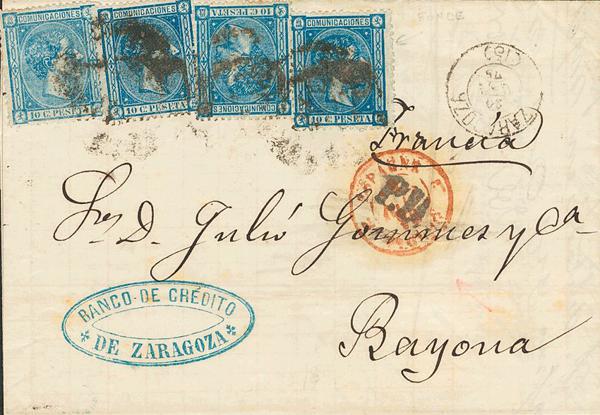 COMUNICACIONES
10 C. PESETA
COMUNICACIONES
10 C. PESETA
10 C. PESETA
COMUNICACIONES
COMUNICACIONES
10 C. PESETA
(15)
75
Francia
P.D.
Sr. D. Julió Gommes y Cª
BANCO·DE CRÉDITO
* DE ZARAGOZA *
Bayona